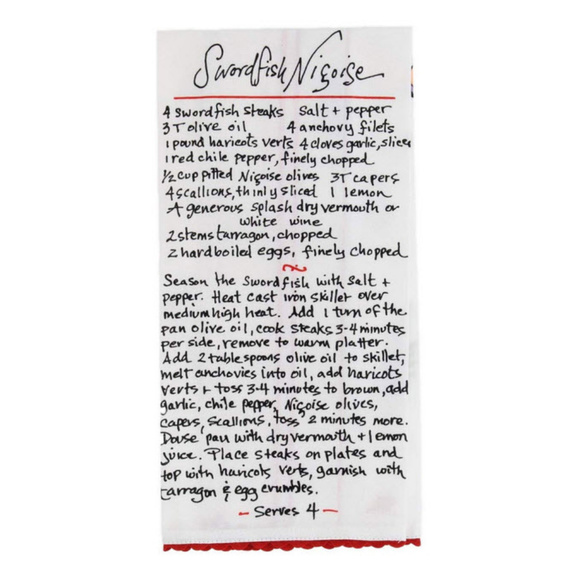 Swordfish Niçoise
4 swordfish steaks salt + pepper
3 T olive oil 4 anchovy filets
1 pound haricots verts 4 cloves garlic, slices
1 red chile pepper, finely chopped
1/2 cup pitted Niçoise olives 3T capers
4 scallions, thinly sliced 1 lemon
A generous splash dry vermouth or
white wine
2 stems tarragon, chopped
2 hardboiled eggs, finely chopped
Season the swordfish with salt +
pepper. Heat cast iron skillet over
medium high heat. Add 1 turn of the
pan olive oil, cook steaks 3-4 minutes
per side, remove to warm platter.
Add 2 tablespoons olive oil to skillet,
melt anchovies into oil, add haricots
verts + toss 3-4 minutes to brown, add
garlic, chile pepper, Niçoise olives,
capers, scallions, toss 2 minutes more.
Douse pan with dry vermouth + lemon
juice. Place steaks on plates and
top with haricots verts, garnish with
tarragon & egg crumbles.
- Serves 4 -